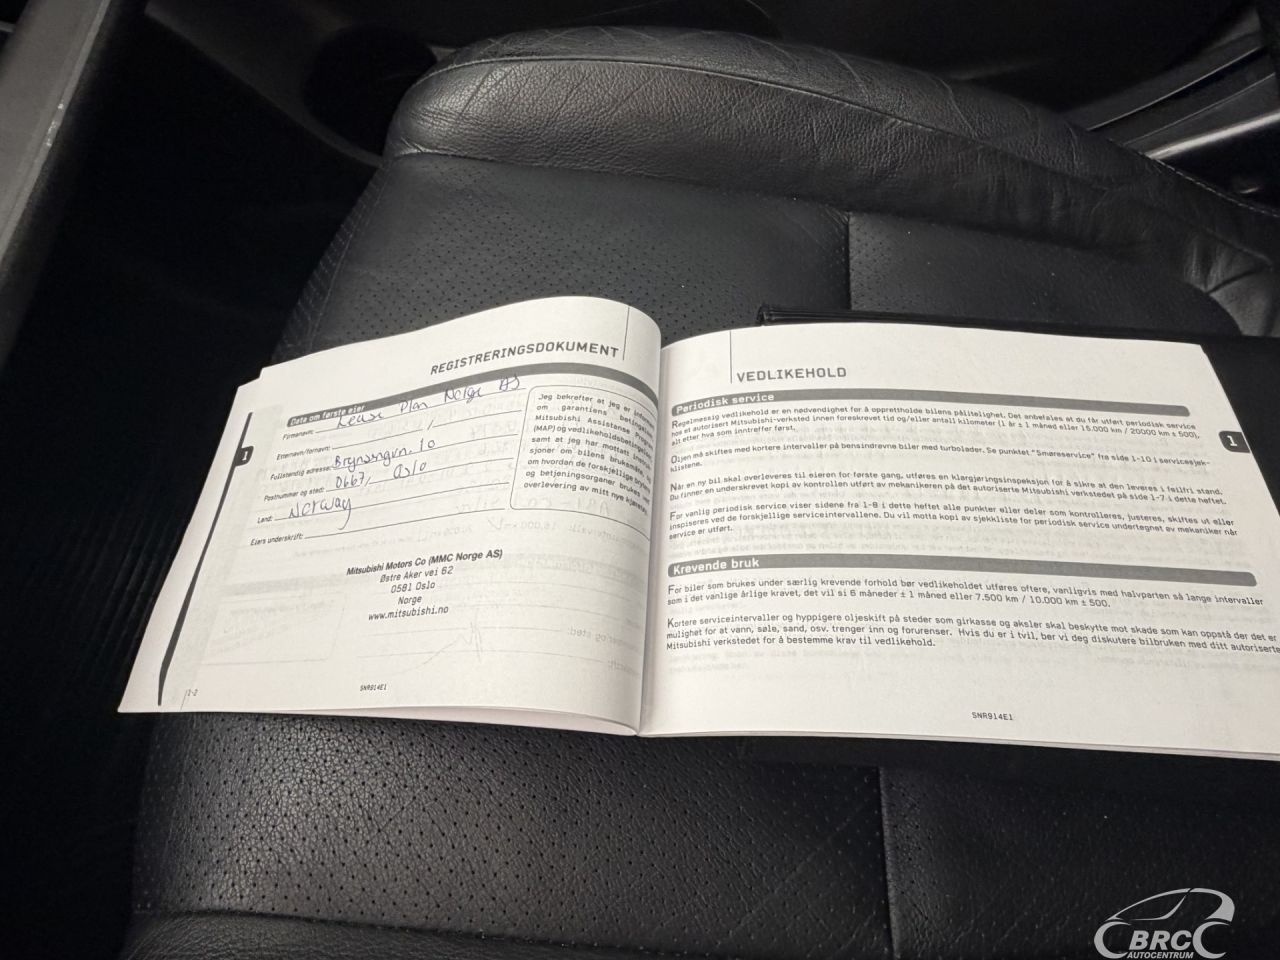 REGISTRERINGSDOKUMENT
Data om første eier
Firmanavn: Lease Plan Norge AS
Etternavn/fornavn:
Fullstendig adresse: Brynsengvn. 10
Postnummer og sted: 0667, Oslo
Land: Norway
Eiers underskrift:
Jeg bekrefter at jeg er informert
om garantiens betingelser,
Mitsubishi Assistanse Program
(MAP) og vedlikeholdsbetingelser
samt at jeg har mottatt
sjoner om bilens bruksmåte og
om hvordan de forskjellige
og betjeningsorganer brukes ved
overlevering av mitt nye kjøretøy
Mitsubishi Motors Co (MMC Norge AS)
Østre Aker vei 62
0581 Oslo
Norge
www.mitsubishi.no
1
1-2
SNR914E1
VEDLIKEHOLD
Periodisk service
Regelmessig vedlikehold er en nødvendighet for å opprettholde bilens pålitelighet. Det anbefales at du får utført periodisk service
hos et autorisert Mitsubishi-verksted innen foreskrevet tid og/eller antall kilometer (1 år ± 1 måned eller 15.000 km / 20000 km ± 500),
alt etter hva som inntreffer først.
Oljen må skiftes med kortere intervaller på bensindrevne biler med turbolader. Se punktet "Smøreservice" fra side 1-10 i servicesjek-
klistene.
Når en ny bil skal overleveres til eieren for første gang, utføres en klargjøringsinspeksjon for å sikre at den leveres i feilfri stand.
Du finner en underskrevet kopi av kontrollen utført av mekanikeren på det autoriserte Mitsubishi verkstedet på side 1-7 i dette heftet.
For vanlig periodisk service viser sidene fra 1-8 i dette heftet alle punkter eller deler som kontrolleres, justeres, skiftes ut eller
inspiseres ved de forskjellige serviceintervallene. Du vil motta kopi av sjekkliste for periodisk service undertegnet av mekaniker når
service er utført.
Krevende bruk
For biler som brukes under særlig krevende forhold bør vedlikeholdet utføres oftere, vanligvis med halvparten så lange intervaller
som i det vanlige årlige kravet, det vil si 6 måneder ± 1 måned eller 7.500 km / 10.000 km ± 500.
Kortere serviceintervaller og hyppigere oljeskift på steder som girkasse og aksler skal beskytte mot skade som kan oppstå der det er
mulighet for at vann, søle, sand, osv. trenger inn og forurenser. Hvis du er i tvil, bør vi deg diskutere bilbruken med ditt autoriserte
Mitsubishi verkstedet for å bestemme krav til vedlikehold.
1
SNR914E1
BRC
AUTOCENTRUM